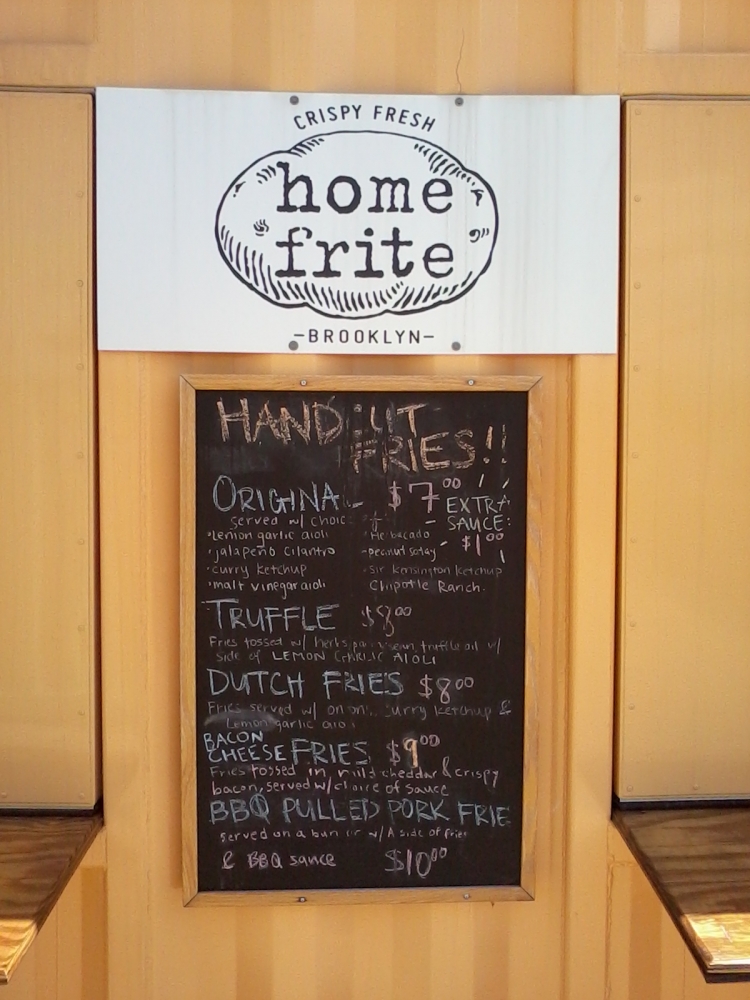 CRISPY FRESH
home
frite
–BROOKLYN–
HAND CUT
FRIES!!
ORIGINAL $7.00
EXTRA
SAUCE:
$1.00
served w/ choice of:
•Lemon garlic aioli
•jalapeño cilantro
•curry ketchup
•malt vinegar aioli
-peanut satay
•Sir Kensington ketchup
Chipotle Ranch.
TRUFFLE $8.00
Fries tossed w/ herbs, parmesan, truffle oil w/
side of LEMON GARLIC AIOLI
DUTCH FRIES $8.00
Fries served w/ onion, curry ketchup &
Lemon garlic aioli
BACON
CHEESE FRIES $9.00
Fries tossed in mild cheddar & crispy
bacon, served w/ choice of sauce
BBQ PULLED PORK FRIE
served on a bun or w/ A side of fries
& BBQ sauce $10.00